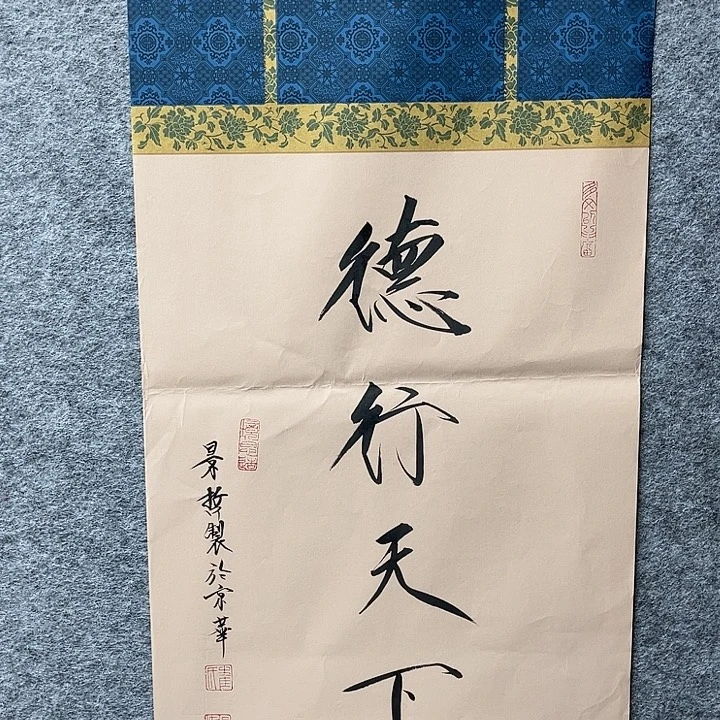 德行天下
景哲製於京華